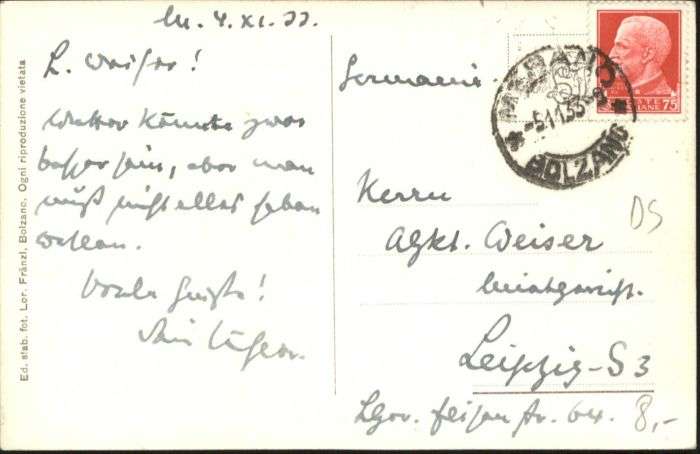 4. XI. 33.
L. Weiser!
Wetter könnte zwar
besser sein, aber man
muß nicht alles haben
wollen.
Viele Grüße!
Germania
MERANO
-5.11.33-
BOLZANO
POSTE ITALIANE 75
Herrn
Weiser
DS
Leipzig-S3
64. 8,-
Ed. stab. fot. Lor. Fränzl, Bolzano. Ogni riproduzione vietata